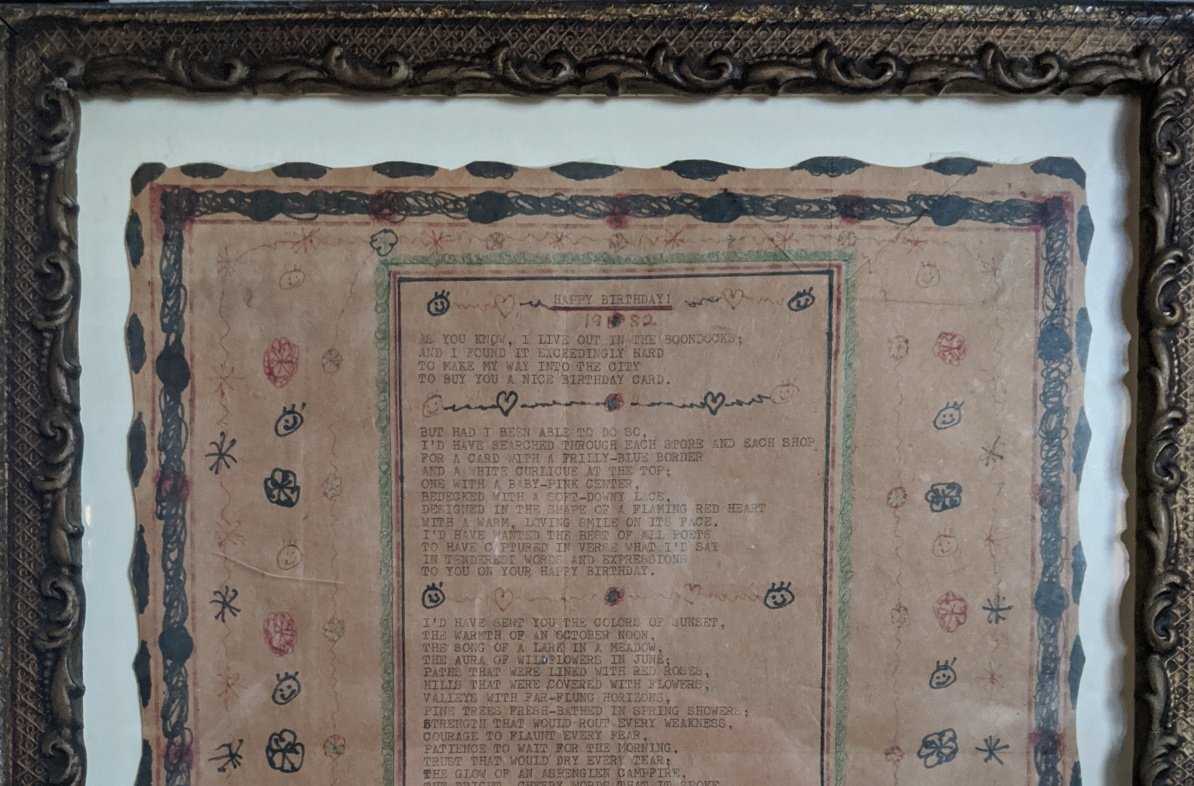 HAPPY BIRTHDAY!
1982
AS YOU KNOW, I LIVE OUT IN THE BOONDOCKS;
AND I FOUND IT EXCEEDINGLY HARD
TO MAKE MY WAY INTO THE CITY
TO BUY YOU A NICE BIRTHDAY CARD.
BUT HAD I BEEN ABLE TO DO SO,
I'D HAVE SEARCHED THROUGH EACH STORE AND EACH SHOP
FOR A CARD WITH A FRILLY-BLUE BORDER
AND A WHITE CURLICUE AT THE TOP;
ONE WITH A BABY-PINK CENTER,
BEDECKED WITH A SOFT-DOWNY LACE,
DESIGNED IN THE SHAPE OF A FLAMING RED HEART
WITH A WARM, LOVING SMILE ON ITS FACE.
I'D HAVE WANTED THE BEST OF ALL POETS
TO HAVE CAPTURED IN VERSE WHAT I'D SAY
IN TENDEREST WORDS AND EXPRESSIONS
TO YOU ON YOUR HAPPY BIRTHDAY.
I'D HAVE SENT YOU THE COLORS OF SUNSET,
THE WARMTH OF AN OCTOBER NOON,
THE SONG OF A LARK IN A MEADOW,
THE AURA OF WILDFLOWERS IN JUNE;
PATHS THAT WERE LINED WITH RED ROSES,
HILLS THAT WERE COVERED WITH FLOWERS,
VALLEYS WITH FAR-FLUNG HORIZONS,
PINE TREES FRESH-BATHED IN SPRING SHOWERS;
STRENGTH THAT WOULD ROUT EVERY WEAKNESS,
COURAGE TO FLAUNT EVERY FEAR,
PATIENCE TO WAIT FOR THE MORNING,
TRUST THAT WOULD DRY EVERY TEAR;
THE GLOW OF AN ASPENGLEN CAMPFIRE,
THE BRIGHT, CHEERY WORDS THAT IT SPOKE